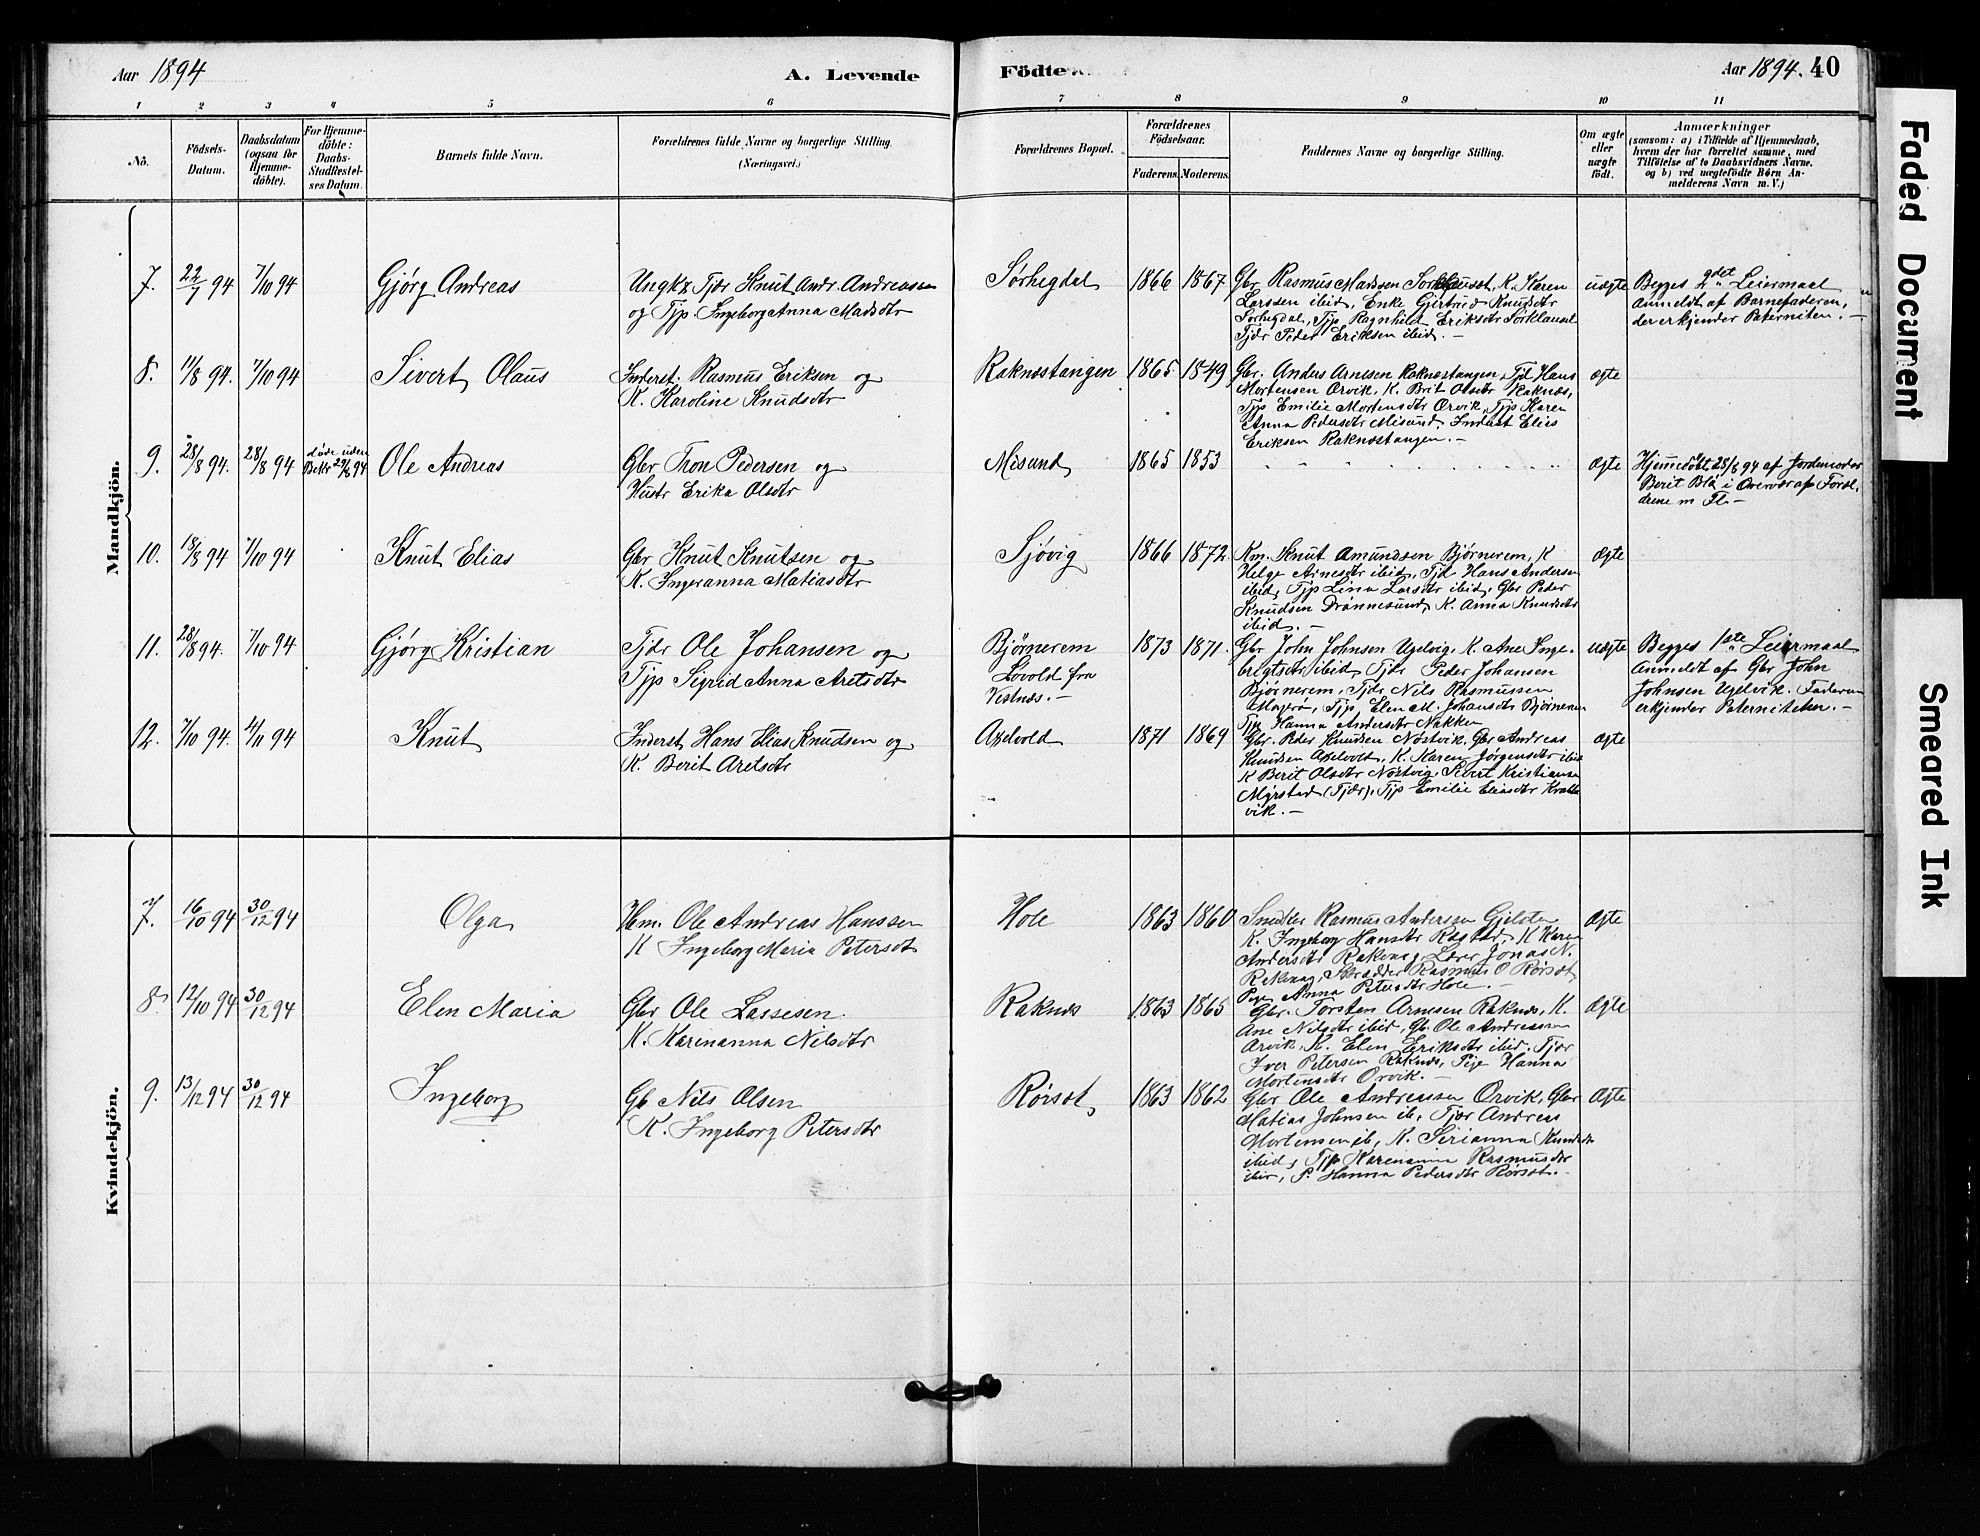 Aar 1894
A. Levende
Födte
Aar 1894. 40
1 2 3 4 5 6 7 8 9 10 11
No.
Födsels-
Datum.
Daabsdatum
(ogsaa for
Hjemme-
döbte).
For Hjemme-
döbte:
Daabs-
Stadfestel-
ses Datum.
Barnets fulde Navn.
Forældrenes fulde Navne og borgerlige Stilling.
(Næringsvei.)
Forældrenes Bopæl.
Forældrenes
Födselsaar.
Faderens. Moderens.
Faddernes Navne og borgerlige Stilling.
Om ægte
eller
uægte
födt.
Anmærkninger
(saasom: a) i Tilfælde af Hjemmedaab,
hvem der har forrettet samme, med
Tilföielse af to Daabsvidners Navne,
og b) ved uægtefödte Börn An-
melderens Navn m. V.)
Mandkjön.
7. 22/7 94 7/10 94 Gjørg Andreas
Ungk. Tjdr Knut Andr. Andreasen
og Tjp. Ingeborg Anna Madsdtr
Sørhegdal 1866 1867
Gbr Rasmus Madsen K. Karen
Larsdtr ibid, Enke Gjertrud Knudsdtr
Sørhegdal, Tjp Ragnhild Eriksdtr
Tjdr Peder Eriksen ibid. —
uægte
Begges 2det Leiermaal
Anmeldt af Barnefaderen,
der erkjender Paterniten. —
8. 11/8 94. 7/10 94 Sivert Olaus
Inderst. Rasmus Eriksen og
K. Karoline Knudsdtr
Raknæstangen 1865 1849
Gbr. Anders Arnesen Raknæstangen, Tjd Hans
Mortensen Orvik, K. Brit Olsdtr Raknæs,
Tjp Emilie Mortensdtr Orvik, Tjp Karen
Anna Pedersdtr Misund, Inderst Elias
Eriksen Raknæstangen. —
ægte
9. 28/8 94. 28/8 94 døde uden
Bekr 29/8 94
Ole Andreas
Gbr Tron Pedersen og
Hustr Erika Olsdtr
Misund 1865 1853
ægte
Hjemmedöbt 28/8 94 af Jordemoder
Berit Blø i Overvær af Foræl.
drene m Fl. —
10. 18/8 94 7/10 94 Knut Elias
Gbr Knut Knutsen og
K. Ingeranna Matiasdtr
Sjøvig 1866 1872.
Km. Knut Amundsen Bjørnerem, K
Helge Arnesdtr ibid, Tjd Hans Andersen
ibid, Tjp Lina Larsdtr ibid, Gbr Peder
Knudsen Drønnesund, K. Anna Knudsdtr
ibid. —
ægte
11. 28/8 94. 7/10 94 Gjørg Kristian
Tjdr Ole Johansen og
Tjp Sigrid Anna Aretsdtr
Bjørnerem
Løvold fra
Vestnæs. —
1873 1871.
Gbr John Johnsen Ugelvig, K. Ane Inge-
brigtsdtr ibid, Tjdr Peder Johansen
Bjørnerem, Tjdr Nils Rasmussen
Majerø, Tjp Elen M. Johansdtr Bjørnerem
Tjp Hanna Andersdtr Nakken
uægte
Begges 1ste Leiermaal
Anmeldt af Gbr John
Johnsen Ugelvik. Faderen
erkjender Paterniteten. —
12. 7/10 94. 4/11 94 Knut
Inderst Hans Elias Knudsen og
K. Berit Aretsdtr
Axelvold 1871 1869
Gbr. Peder Knudsen Nøstvik, Gbr Andreas
Knudsen Axelvold, K. Karen Jørgensdtr ibid
K Berit Olsdtr Nøstvig, Sivert Kristiansen
Myrstad (Tjdr), Tjp Emilie Eliasdtr
vik. —
ægte
Kvindekjön.
7. 16/10 94 30/12 94 Olga
Hm. Ole Andreas Hanssen
K Ingeborg Maria Petersdt
Hole 1863 1860
Smeder Rasmus Andersen Gjelsten
K. Ingeborg Hansdtr Røstad, K Karen
Andersdtr Rakenæg, Lærer Jonas N.
Rekenæg, Skrædder Rasmus O Rørset
Pige Anna Petersdtr Hole. —
ægte
8. 12/10 94 30/12 94 Elen Maria
Gbr Ole Lassesen.
K. Karenanna Nilsdtr
Raknæs 1863 1865
Gbr. Torsten Arnesen Raknæs, K.
Ane Nilsdtr ibid, Gb. Ole Andreassen
Orvik, K. Elen Eriksdtr ibid. Tjdr
Iver Petersen Raknæs, Pige Hanna
Mortensdtr Orvik. —
ægte
9. 13/12 94 30/12 94 Ingeborg
Gb Nils Olsen
K. Ingeborg Petersdtr
Rørset 1863 1862
Gbr Ole Andreassen Orvik, Gbr
Matias Johnsen ib, Tjdr Andreas
Mortensen ib, K. Serianna Knudsdtr
ibid, Tjp Karenanna Rasmusdtr
ibid, P. Hanna Pedersdtr Rørset. —
ægte
Faded Document
Smeared Ink